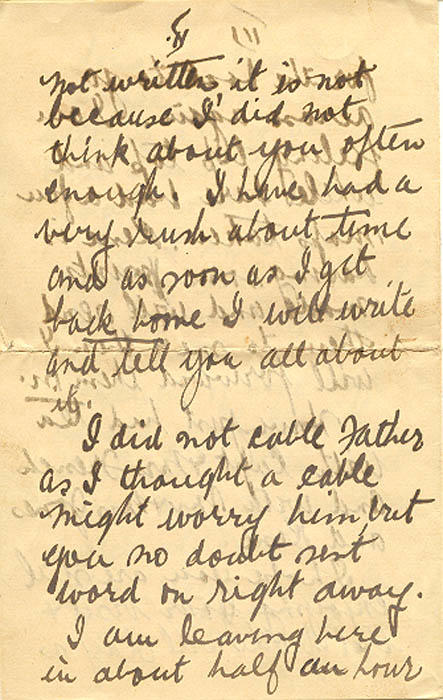 not written it is not
because I did not
think about you often
enough. I have had a
very rush about time
and as soon as I get
back home I will write
and tell you all about
it.
I did not cable Father
as I thought a cable
might worry him, but
you no doubt sent
word on right away.
I am leaving here
in about half an hour